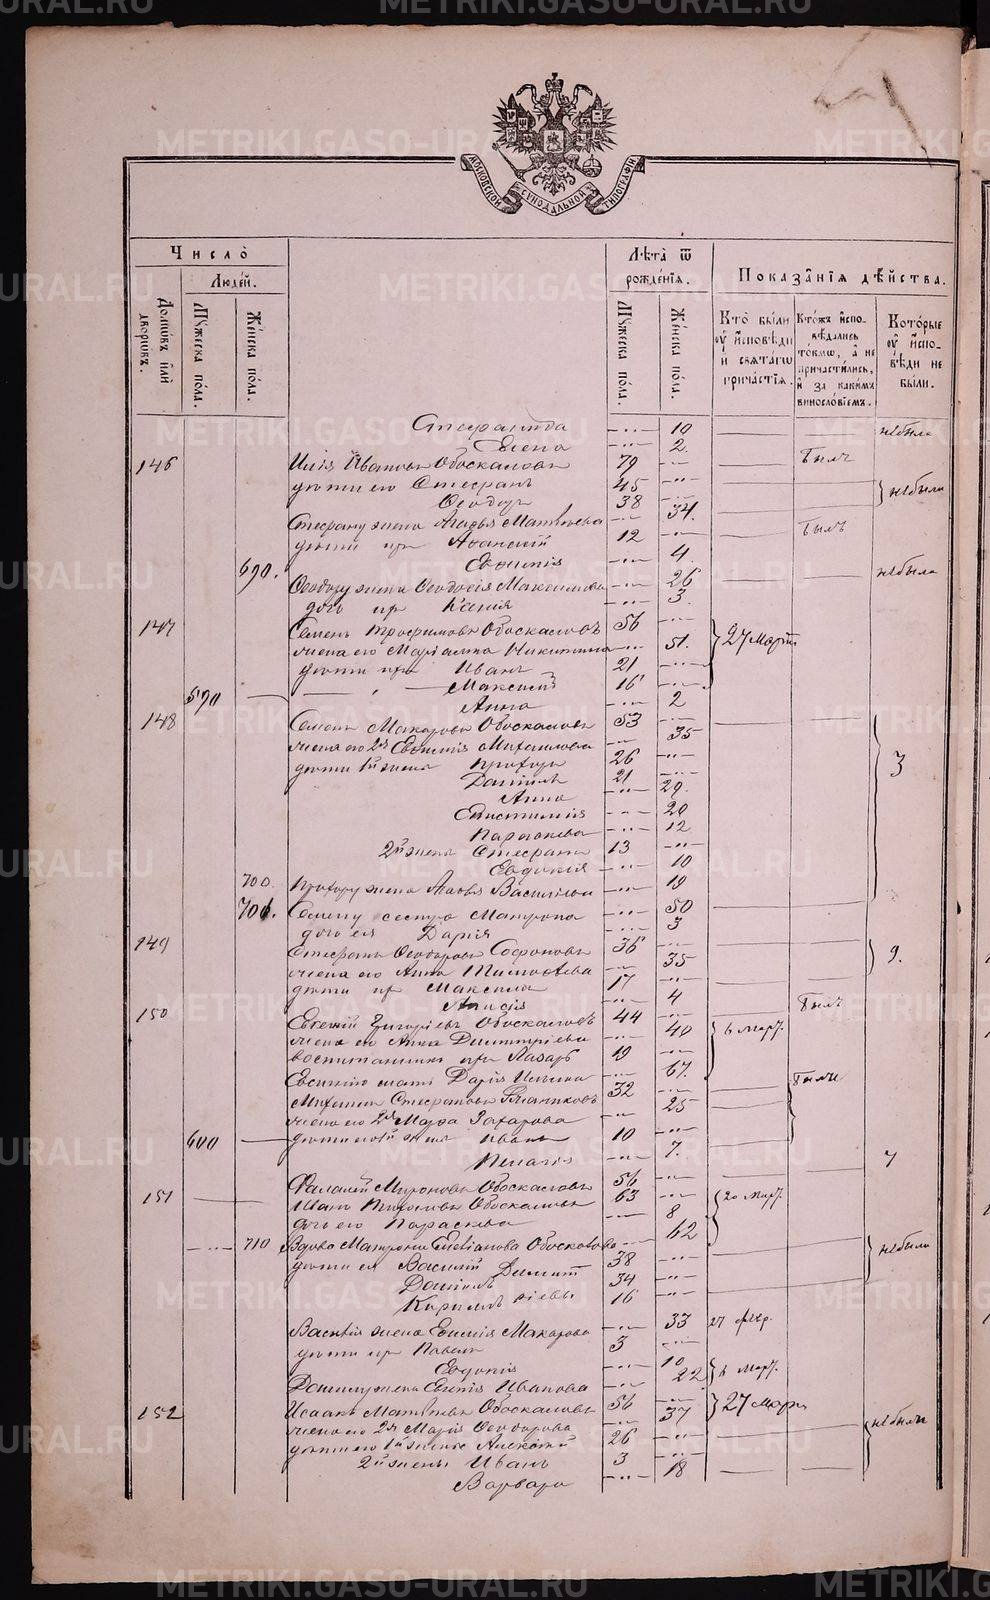 METRIKI.GASO-URAL.RU
МОСКОВСКОЙ СѴНОДАЛЬНОЙ ТИПОГРАФІИ
Число̀
Лѣта̀ ѿ рожде́нїѧ.
Показа̑нїѧ дѣ́йства.
Люде́й.
Домѡ́въ и҆лѝ дворѡ́въ.
Мꙋ́жеска по́ла.
Же́нска по́ла.
Мꙋ́жеска по́ла.
Же́нска по́ла.
Кто̀ бы́ли ᲂу҆ и҆́сповѣди и҆ свѧта́гѡ прича́стїѧ.
Кто́жъ и҆спо- вѣ́дались то́кмѡ, а҆ не причасти́лись, и҆ за каки́мъ винослᲂ́вїемъ.
Кото́рые ᲂу҆ и҆́спо- вѣди не бы́ли.
Стефанида --- 10 не была
Елена --- 2
146 Илія Ивановъ Обоскаловъ 79 --- былъ
дѣти его Стефанъ 45 --- не были
Ѳеодоръ 38 ---
Стефану жена Агафья Матвѣева --- 34. былъ
дѣти ихъ Аѳанасій 12 ---
Евѳимія --- 4
690. Ѳеодору жена Ѳеодосія Максимова --- 26 не была
дочь ихъ Ксенія --- 3
147 Семенъ Трофимовъ Обоскаловъ 56 --- 27 Марта
жена его Маріамна Никитина --- 51.
дѣти ихъ Иванъ 21 ---
590 Максимъ 16 ---
Анна --- 2
148 Семенъ Макаровъ Обоскаловъ 53 --- 3
жена его 2я Евѳимія Михаилова --- 35
дѣти 1й жены Прохоръ 26 ---
Даніилъ 21 ---
Анна --- 29.
Епистимія --- 20
Параскева --- 12
2й жены Стефанъ 13 ---
Евдокія --- 10
700. Прохору жена Агафья Васильева --- 19
701. Семену сестра Матрона --- 50
дочь ея Дарія --- 3
149 Стефанъ Ѳеодоровъ Софроновъ 36 --- 9.
жена его Анна Тимоѳеева --- 35
дѣти ихъ Максимъ 17 ---
--- 4 былъ
150 Евсевій Григорьевъ Обоскаловъ 44 --- 6 Март.
жена его Анна Димитріева --- 40
воспитанникъ ихъ Лазарь 19 ---
Евсевію мать Дарія Ильина --- 67. были
Михаилъ Стефановъ 32 ---
жена его 2я Марѳа Захарова --- 25
600 дѣти его 1й жены Иванъ 10 ---
Пелагія --- 7. 7
151 Фалалей Мироновъ Обоскаловъ 56 --- 20 Март.
Иванъ Обоскаловъ 63 ---
дочь его Параскева --- 8
710 Вдова Матрона Обоскалова --- 62 не были
дѣти ея Василій 38 ---
Даніилъ 34 ---
Кириллъ 16 ---
Василія жена Макарова --- 33 27 февр.
дѣти ихъ Павелъ 3 ---
Евдокія --- 10 6 Март.
Даніилу жена Иванова --- 22
152 Исаакъ Матвѣевъ Обоскаловъ 56 --- 27 Марта
жена его 2я Марія Ѳеодорова --- 37 не были
дѣти его 1й жены Алексѣй 26 ---
2й жены Иванъ 3 ---
Варвара --- 18